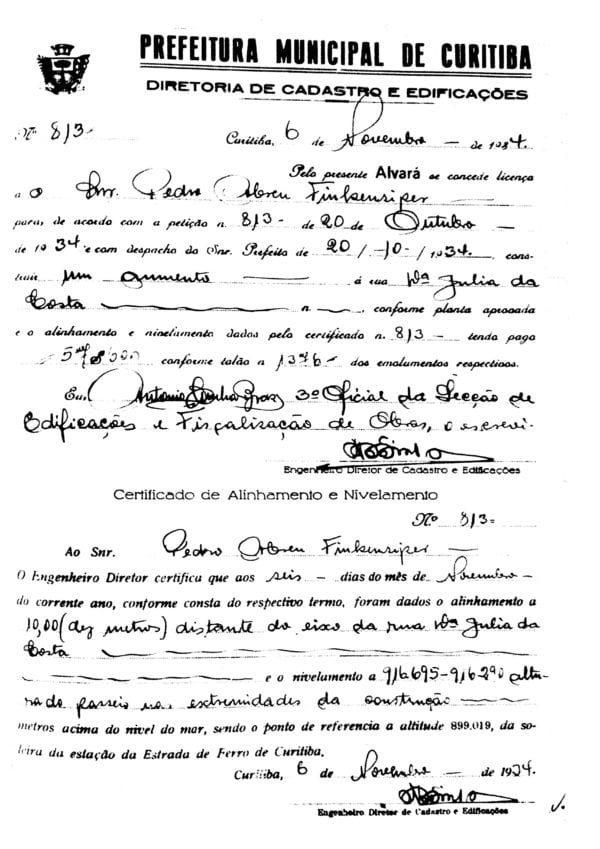 PREFEITURA MUNICIPAL DE CURITIBA
DIRETORIA DE CADASTRO E EDIFICAÇÕES
Nº 813-
Curitiba, 6 de Novembro - de 1934.
Pelo presente Alvará se concede licença
a o Snr. Pedro Abreu Finkensieper
para, de acordo com a petição n. 813- de 20 de Outubro -
de 1934 e com despacho do Snr. Prefeito de 20/-10-/1934. cons-
truir um aumento á rua Dª Julia da
Costa n. , conforme planta aprovada
e o alinhamento e nivelamento dados pelo certificado n. 813- tendo pago
conforme talão n 1376- dos emolumentos respectivos.
Eu, Antonio 3º Oficial da Secção de
Edificações e Fiscalização de Obras, o escrevi.
Engenheiro Diretor de Cadastro e Edificações
Certificado de Alinhamento e Nivelamento
Nº 813-
Ao Snr. Pedro Abreu Finkensieper
O Engenheiro Diretor certifica que aos seis - dias do mês de Novembro -
do corrente ano, conforme consta do respectivo termo, foram dados o alinhamento a
10,00 (dez metros) distante do eixo da rua Dª Julia da
Costa
e o nivelamento a 916.695-916.290 altu-
ra do passeio nas extremidades da construção
metros acima do nivel do mar, sendo o ponto de referencia a altitude 899.019, da so-
leira da estação da Estrada de Ferro de Curitiba.
Curitiba, 6 de Novembro - de 1934.
Engenheiro Diretor de Cadastro e Edificações